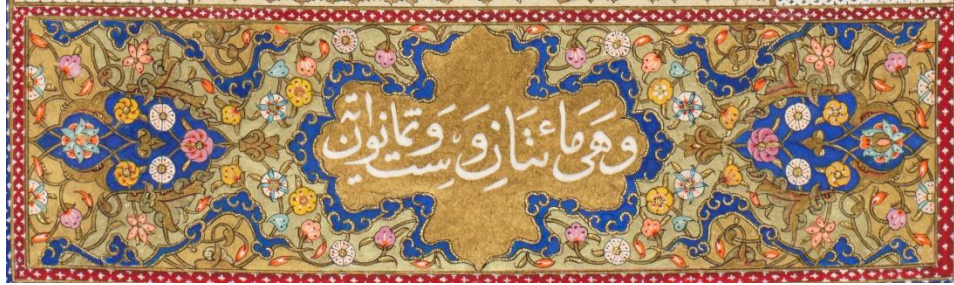 وَهَىَ مَائتَانِ وَسِت وَثمانون اية